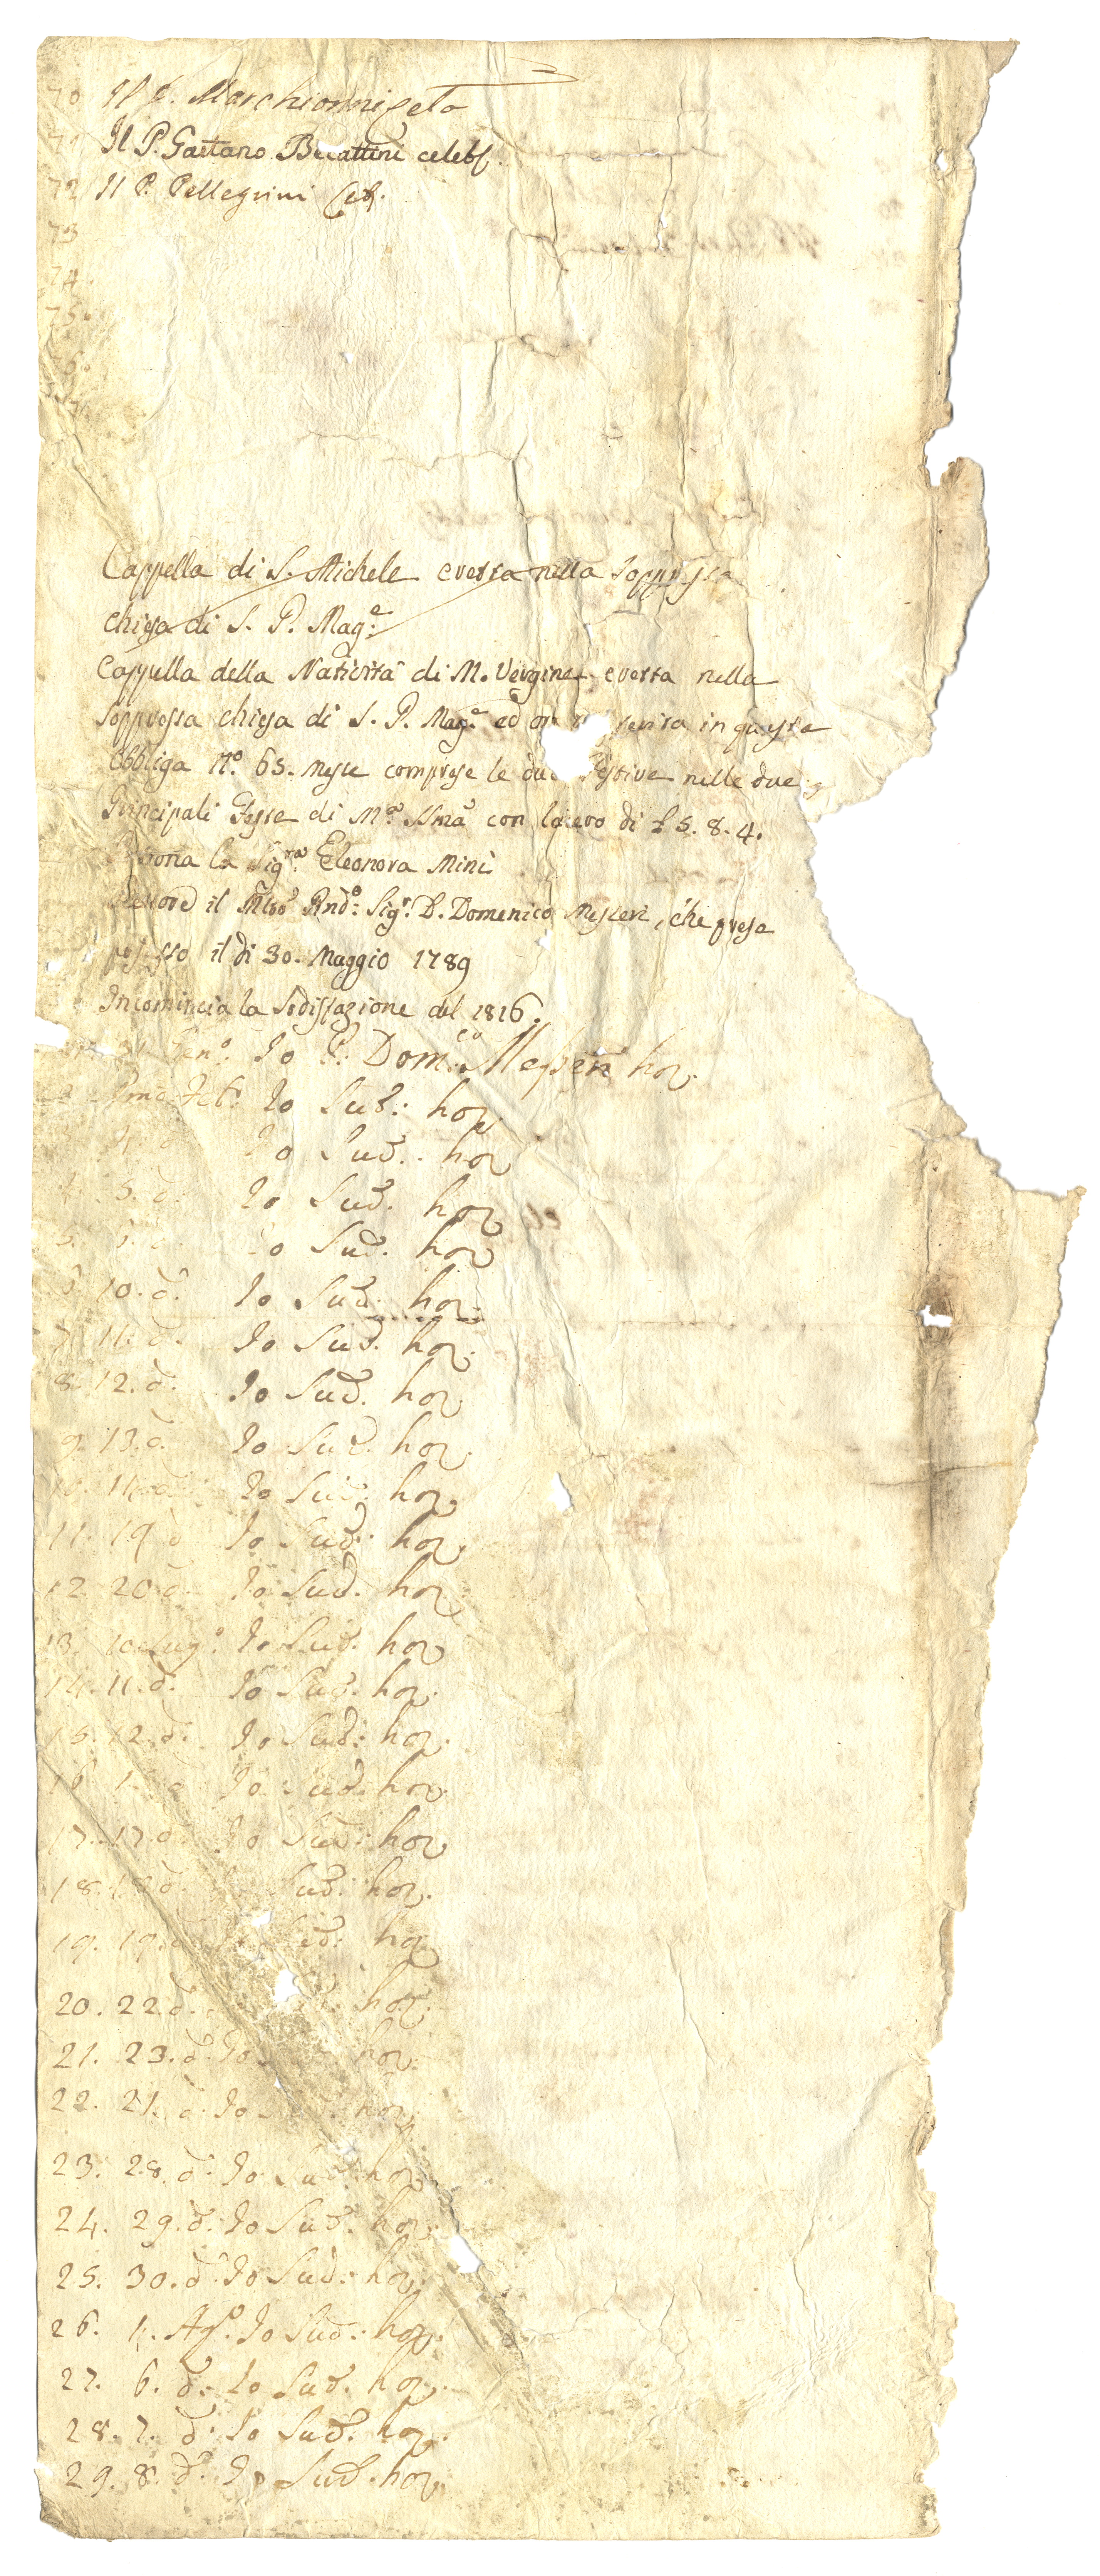 70 Il P. Marchionni celo
71 Il P. Gaetano Becattini celebr.
72 Il P. Pellegrini Celr.
73
74.
75.
76.
Cappella di S. Michele eretta nella soppressa
chiesa di S. P. Mag.e
Cappella della Natività di M. Vergine eretta nella
soppressa chiesa di S. P. Mag.e ed or in questa
Obbliga N.o 65. Messe comprese le due Festive nelle due
Principali Feste di M.a SSma con la cero di £ 5. 8. 4.
la Sig.ra Eleonora Mini
Rettore il Mto Rndo: Sigr. D. Domenico Messeri, che prese
possesso il dì 30. Maggio 1789
Incomincia la Sodisfazione del 1816.
Gen.o Io P. Dom.co Messeri ho
Feb. Io Sud: ho
4. Io Sud. ho
4. 5. d. Io Sud. ho
5. d. Io Sud. ho
6 10. d. Io Sud. ho
7. 11. d. Io Sud. ho
8. 12. d. Io Sud. ho
9. 13. d. Io Sud. ho
10. d. Io Sud. ho
11. 19 d Io Sud: ho
12. 20 d. Io Sud. ho
13. 10 Lug.o Io Sud. ho
14. 11. d. Io Sud. ho
15. 12. d. Io Sud: ho
16 d Io Sud. ho
17. 17. d Io Sud: ho
18. 18 d. Sud: ho
19. 19. d Sud: ho
20. 22. d. ho
21. 23. d. Io ho
22. 21. d. Io ho
23. 28. d. Io Sud. ho
24. 29. d. Io Sud. ho
25. 30. d. Io Sud. ho
26. 4. Ag.o Io Sud: ho
27. 6. d. Io Sud. ho
28. 7. d. Io Sud. ho
29. 8. d. Io Sud. ho